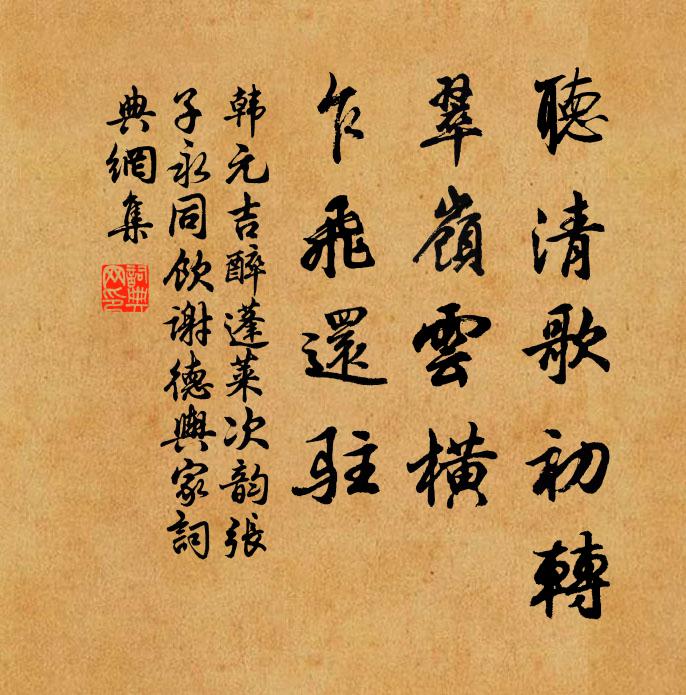 聽清歌初轉
翠嶺雲橫
乍飛還駐
韩元吉醉蓬莱次韵張
子永同飲谢德興家詞
典網集
詞典网印